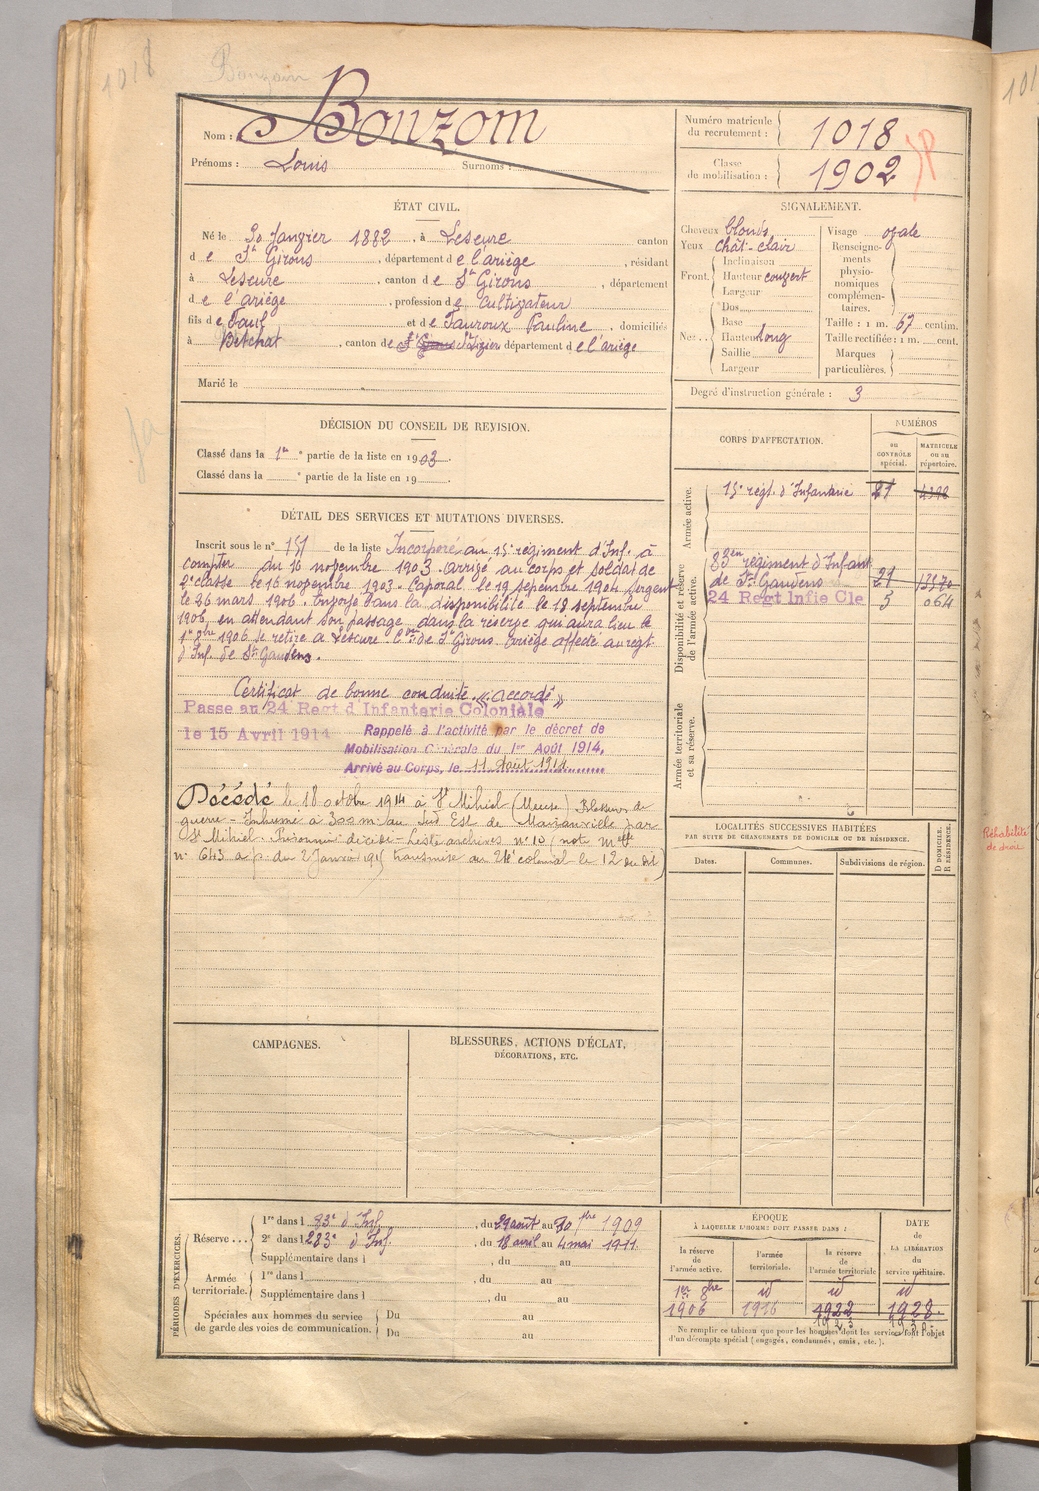 1018
Bouzom
Nom : Bouzom
Prénoms : Louis Surnoms :
Numéro matricule du recrutement : 1018
Classe de mobilisation : 1902
ÉTAT CIVIL.
Né le 30 Janvier 1882, à Lescure canton
d e St Girons, département d e l'ariège, résidant
à Lescure, canton d e St Girons, département
d e l'ariège, profession d e Cultivateur
fils d e Paul et d e Fauroux Pauline, domiciliés
à Betchat, canton de St Girons St Lizier département d e l'ariège
Marié le
SIGNALEMENT.
Cheveux blonds
Yeux chât-clair
Front. Inclinaison
Hauteur couvert
Largeur
Nez... Dos
Base
Hauteur long
Saillie
Largeur
Visage ovale
Renseignements physionomiques complémentaires.
Taille : 1 m. 67 centim.
Taille rectifiée : 1 m. cent.
Marques particulières.
Degré d'instruction générale : 3
DÉCISION DU CONSEIL DE REVISION.
Classé dans la 1re partie de la liste en 1903.
Classé dans la ° partie de la liste en 19
CORPS D'AFFECTATION.
NUMÉROS
au CONTRÔLE spécial.
MATRICULE ou au répertoire.
Armée active.
15e régt. d'Infanterie 21
Disponibilité et réserve de l'armée active.
83em régiment d'Infant
de St Gaudens 21 13570
24 Regt Infie Cle 3 064
Armée territoriale et sa réserve.
DÉTAIL DES SERVICES ET MUTATIONS DIVERSES.
Inscrit sous le n° 151 de la liste Incorporé au 15e régiment d'Inf. à
compter du 16 novembre 1903. arrivé au corps et soldat de
2e classe le 16 novembre 1903. Caporal le 19 septembre 1904 Sergent
le 26 mars 1906. Envoyé dans la disponibilité le 18 septembre
1906, en attendant son passage dans la réserve qui aura lieu le
1er 8bre 1906 Se retire à Lescure Con de St Girons Ariège affecté au régt
d'Inf. de St Gaudens.
Certificat de bonne conduite « accordé »
Passe au 24 Regt d Infanterie Coloniale
le 15 Avril 1914
Rappelé à l'activité par le décret de
Mobilisation Générale du 1er Août 1914,
Arrivé au Corps, le 11 Août 1914
Décédé le 18 octobre 1914 à St Mihiel (Meuse) Blessures de
guerre - Inhumé à 300 m. au Sud Est de par
St Mihiel. Prisonnier décédé - Liste archives n° 10 (note melle
n° 643 a/p. du 2 Janvier 1915 transmise au 24e colonial le 12 du dit)
LOCALITÉS SUCCESSIVES HABITÉES
PAR SUITE DE CHANGEMENTS DE DOMICILE OU DE RÉSIDENCE.
Dates. Communes. Subdivisions de région. D DOMICILE. R RÉSIDENCE.
Réhabilité de droit
CAMPAGNES.
BLESSURES, ACTIONS D'ÉCLAT,
DÉCORATIONS, ETC.
PÉRIODES D'EXERCICES.
Réserve... 1re dans l 83e d'Inf., du 29 août au 30 1909
2e dans l 283e d'Inf., du 18 avril au 4 mai 1911
Supplémentaire dans l, du au
Armée territoriale. 1re dans l, du au
Supplémentaire dans l, du au
Spéciales aux hommes du service de garde des voies de communication. Du au
Du au
ÉPOQUE
À LAQUELLE L'HOMME DOIT PASSER DANS :
la réserve de l'armée active.
l'armée territoriale.
la réserve de l'armée territoriale
DATE de LA LIBÉRATION du service militaire.
1er 8bre id id id
1906 1916 1922 1928.
1923 1930.
Ne remplir ce tableau que pour les hommes dont les services font l'objet
d'un décompte spécial (engagés, condamnés, omis, etc.).